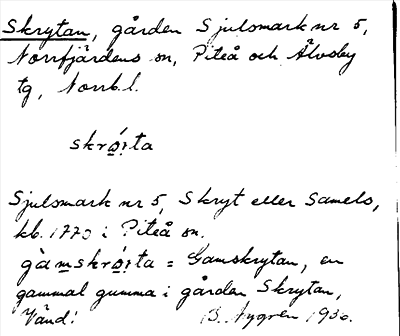 Skrytan, gården Sjulsmark nr 5,
Norrfjärdens sn, Piteå och Älvsby
tg, Norrb.l.
skró̤ṭta
Sjulsmark nr 5, Skryt eller Samels,
kb. 1770 i Piteå sn.
gàmskró̤ṭta = Gamskrytan, en
gammal gumma i gården Skrytan,
Vänd! B. Nygren 1930.